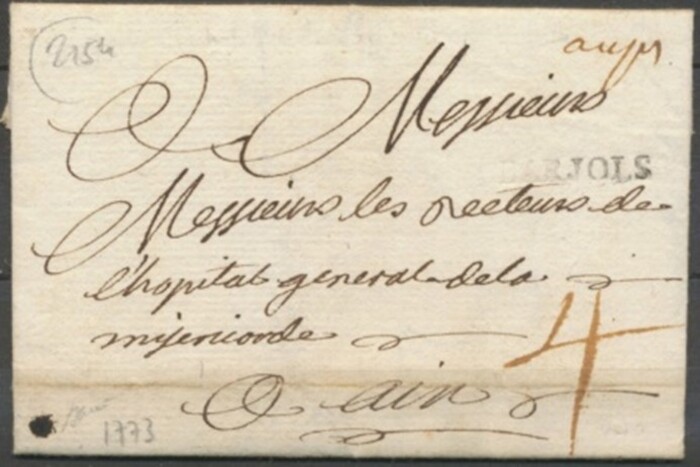 215h
A Messieurs
BARJOLS
Messieurs les recteurs de
l'hopital general de la
misericorde
4
A aix
1773